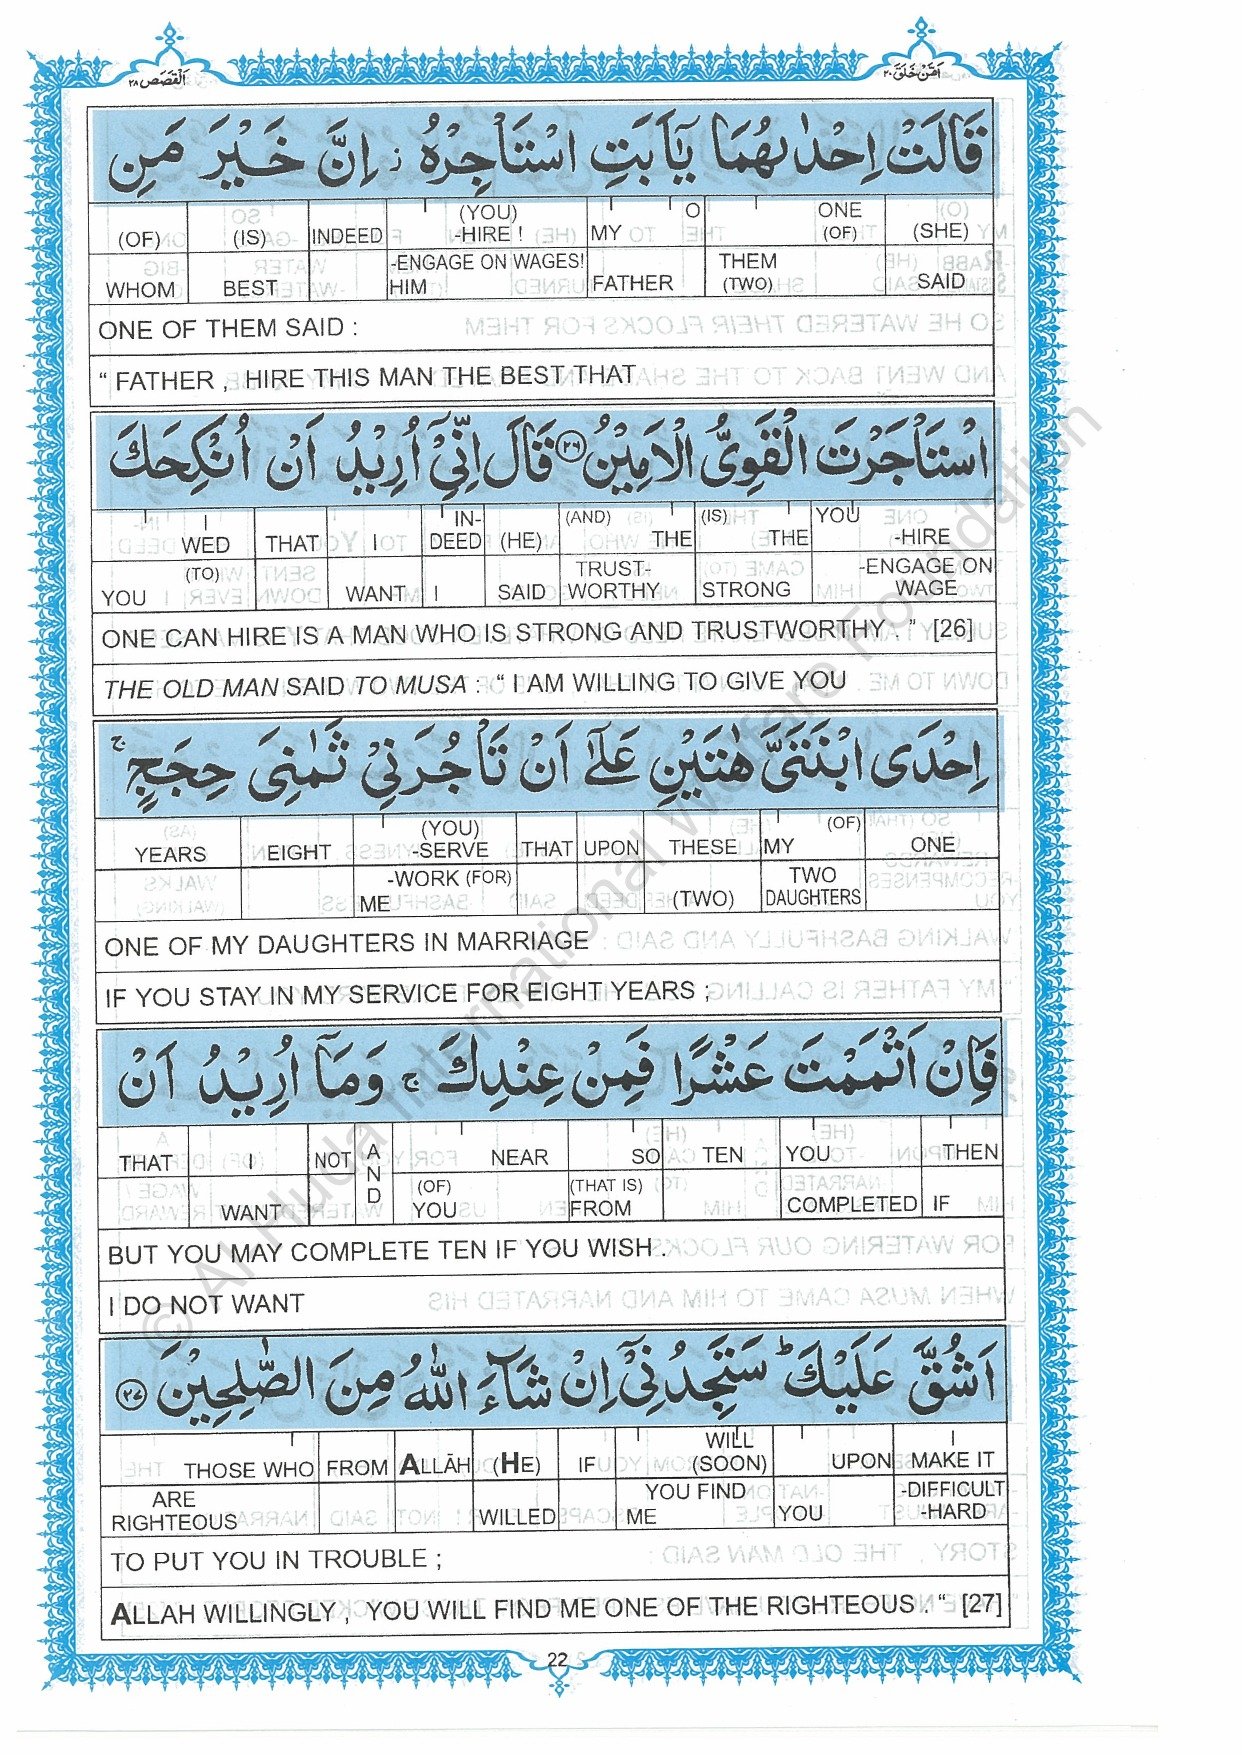 اَمَّنْ خَلَقَ ٢٠
اَلْقَصَص ٢٨
قَالَتْ اِحْدٰىهُمَا يٰۤاَبَتِ اسْتَاْجِرْهُ ز اِنَّ خَيْرَ مَنِ
(OF) (IS) INDEED (YOU) -HIRE ! MY O ONE (OF) (SHE)
WHOM BEST -ENGAGE ON WAGES! HIM FATHER THEM (TWO) SAID
ONE OF THEM SAID :
“ FATHER , HIRE THIS MAN THE BEST THAT
اسْتَاْجَرْتَ الْقَوِىُّ الْاَمِيْنُ ٢٦ قَالَ اِنِّىْۤ اُرِيْدُ اَنْ اُنْكِحَكَ
I WED THAT I IN- DEED (HE) (AND) THE (IS) THE YOU -HIRE
(TO) YOU WANT I SAID TRUST- WORTHY STRONG -ENGAGE ON WAGE
ONE CAN HIRE IS A MAN WHO IS STRONG AND TRUSTWORTHY . ” [26]
THE OLD MAN SAID TO MUSA : “ I AM WILLING TO GIVE YOU
اِحْدَى ابْنَتَىَّ هٰتَيْنِ عَلٰۤى اَنْ تَاْجُرَنِىْ ثَمٰنِىَ حِجَجٍ ج
YEARS EIGHT (YOU) -SERVE THAT UPON THESE MY (OF) ONE
-WORK (FOR) ME (TWO) TWO DAUGHTERS
ONE OF MY DAUGHTERS IN MARRIAGE
IF YOU STAY IN MY SERVICE FOR EIGHT YEARS ;
فَاِنْ اَتْمَمْتَ عَشْرًا فَمِنْ عِنْدِكَ ج وَمَاۤ اُرِيْدُ اَنْ
THAT I NOT AND NEAR SO TEN YOU THEN
WANT (OF) YOU (THAT IS) FROM COMPLETED IF
BUT YOU MAY COMPLETE TEN IF YOU WISH .
I DO NOT WANT
اَشُقَّ عَلَيْكَ ط سَتَجِدُنِىْۤ اِنْ شَآءَ اللّٰهُ مِنَ الصّٰلِحِيْنَ ٢٧
THOSE WHO FROM ALLĀH (HE) IF WILL (SOON) UPON MAKE IT
ARE RIGHTEOUS WILLED YOU FIND ME YOU -DIFFICULT -HARD
TO PUT YOU IN TROUBLE ;
ALLAH WILLINGLY , YOU WILL FIND ME ONE OF THE RIGHTEOUS . “ [27]
22
© Al Huda International Welfare Foundation